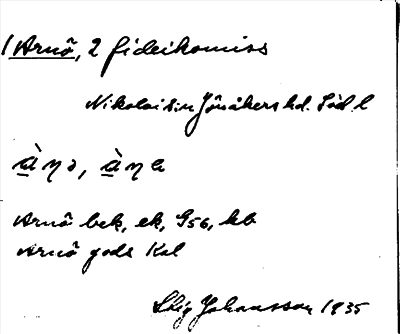 1 Arnö, 2 fideikomiss
Nikolai sn Jönåkers hd. Söd. l
àṇə, àṇa
Arnö bek, ek, G56, kb
Arnö gods Kal
Stig Johansson 1935